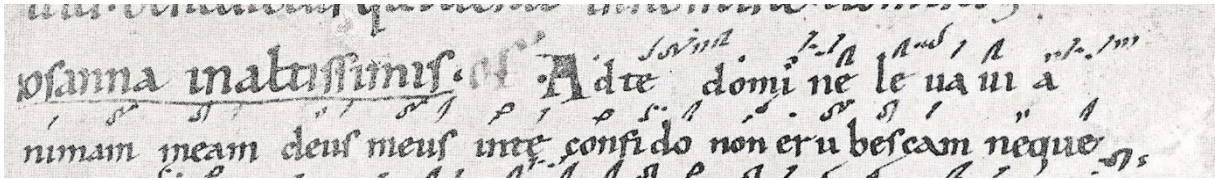 osanna inaltissimis. of Adte domi ne le ua ui a
nimam meam deus meus intę confido non eru bescam neque